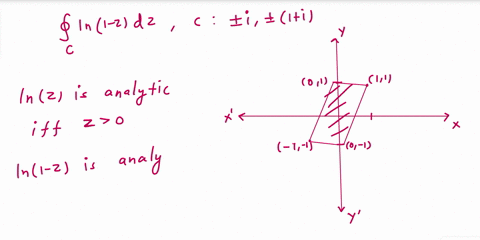 ∮ ln(1-z) dz , c : ±i, ±(1+i)
C
ln(z) is analytic
iff z>0
ln(1-z) is analy
Y
(0,1)
(1,1)
X'
X
(-1,-1)
(0,-1)
Y'